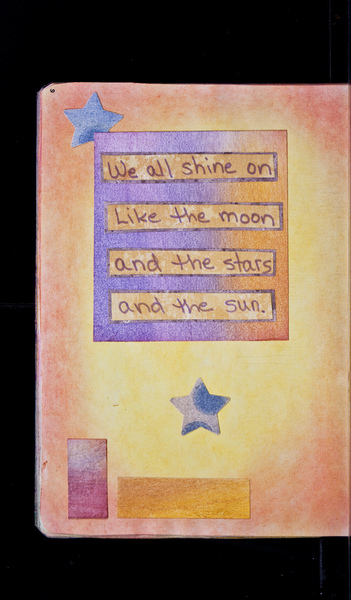 We all shine on
Like the moon
and the stars
and the sun.